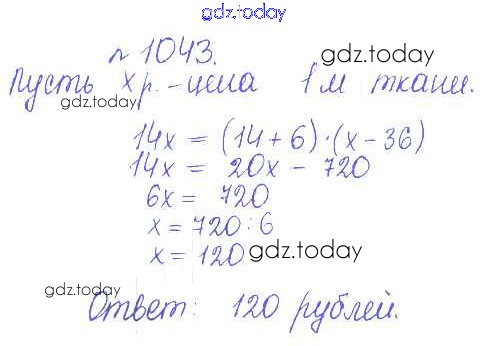 gdz.today
№ 1043.
gdz.today
Пусть x р. - цена 1 м ткани.
gdz.today
14x = (14 + 6) · (x - 36)
14x = 20x - 720
6x = 720
x = 720 : 6
x = 120
gdz.today
gdz.today
Ответ: 120 рублей.